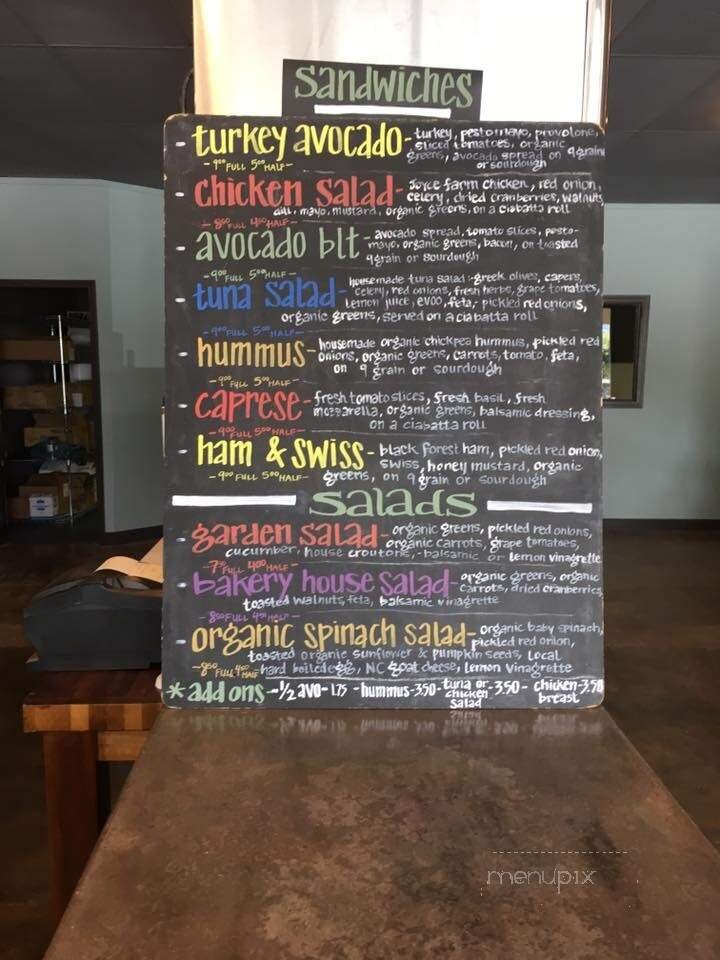 sandwiches
turkey avocado- turkey, pesto mayo, provolone,
sliced tomatoes, organic
greens, avocado spread on 9 grain
or sourdough
- 9⁰⁰ FULL 5⁰⁰ HALF -
chicken salad- Joyce farm chicken, red onion,
celery, dried cranberries, walnuts
dill, mayo, mustard, organic greens, on a ciabatta roll
FULL HALF -
avocado blt - avocado spread, tomato slices, pesto-
mayo, organic greens, bacon, on toasted
9 grain or sourdough
- 9⁰⁰ FULL 5⁰⁰ HALF -
tuna salad- housemade tuna salad: greek olives, capers,
celery, red onions, fresh herbs, grape tomatoes,
lemon juice, evoo, feta, pickled red onions,
organic greens, served on a ciabatta roll
- 9⁰⁰ FULL 5⁰⁰ HALF -
hummus- housemade organic chickpea hummus, pickled red
onions, organic greens, carrots, tomato, feta,
on 9 grain or sourdough
- 9⁰⁰ FULL 5⁰⁰ HALF -
caprese - fresh tomato slices, fresh basil, fresh
mozzarella, organic greens, balsamic dressing,
on a ciabatta roll
- 9⁰⁰ FULL 5⁰⁰ HALF -
ham & swiss - black forest ham, pickled red onion,
swiss, honey mustard, organic
greens, on 9 grain or sourdough
- 9⁰⁰ FULL 5⁰⁰ HALF -
salads
garden salad- organic greens, pickled red onions,
organic carrots, grape tomatoes,
cucumber, house croutons, - balsamic or lemon vinagrette
FULL 4⁰⁰ HALF -
bakery house salad- organic greens, organic
carrots, dried cranberries
toasted walnuts, feta, balsamic vinagrette
FULL HALF -
organic spinach salad- organic baby spinach,
pickled red onion,
toasted organic sunflower & pumpkin seeds, local
FULL HALF hard boiled egg, NC goat cheese, lemon vinagrette
* add ons - 1/2 avo - 1.75 - hummus - 3.50 - tuna or chicken salad - 3.50 - chicken breast - 3.50
menupix